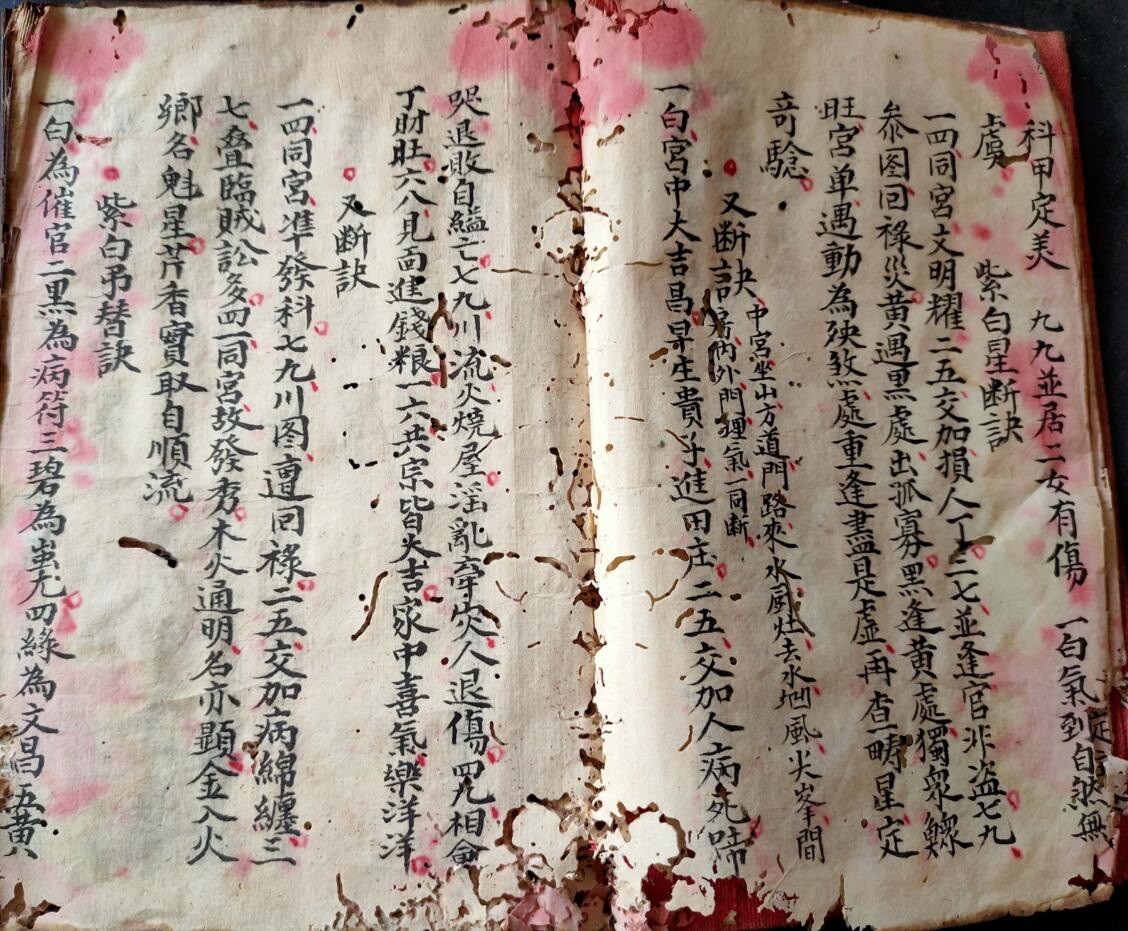 科甲定美　九九並居二女有傷　一白氣到自然無
虞　　紫白星断訣
一四同宮文明耀二五交加損人丁三七並逢官非盗七九
叅图回禄災黄遇黒處出孤寡黑逢黄處獨衆鰥
旺宮单遇動為殃煞處重逢盡是虛再查疇星定
竒驗
又断訣 中宮坐山方道門路來水厨灶去水凹風尖峯間
房內外門狸氣一同断
一白宮中大吉昌昇生貴子進田庄二五交加人病死啼
哭退敗自縊亡七九川流火燒屋淫亂穿穴人退傷四九相會
丁財旺六八見面進錢粮一六共宗皆大吉家中喜氣樂洋洋
又断訣
一四同宮準發科七九川图遭回禄二五交加病綿纏三
七叠臨賊訟多四一同宮故發秀木火通明名亦顯金入火
鄉名魁星芹香實取自順流
紫白吊替訣
一白為催官二黑為病符三碧為蚩尤四緣為文昌五黄